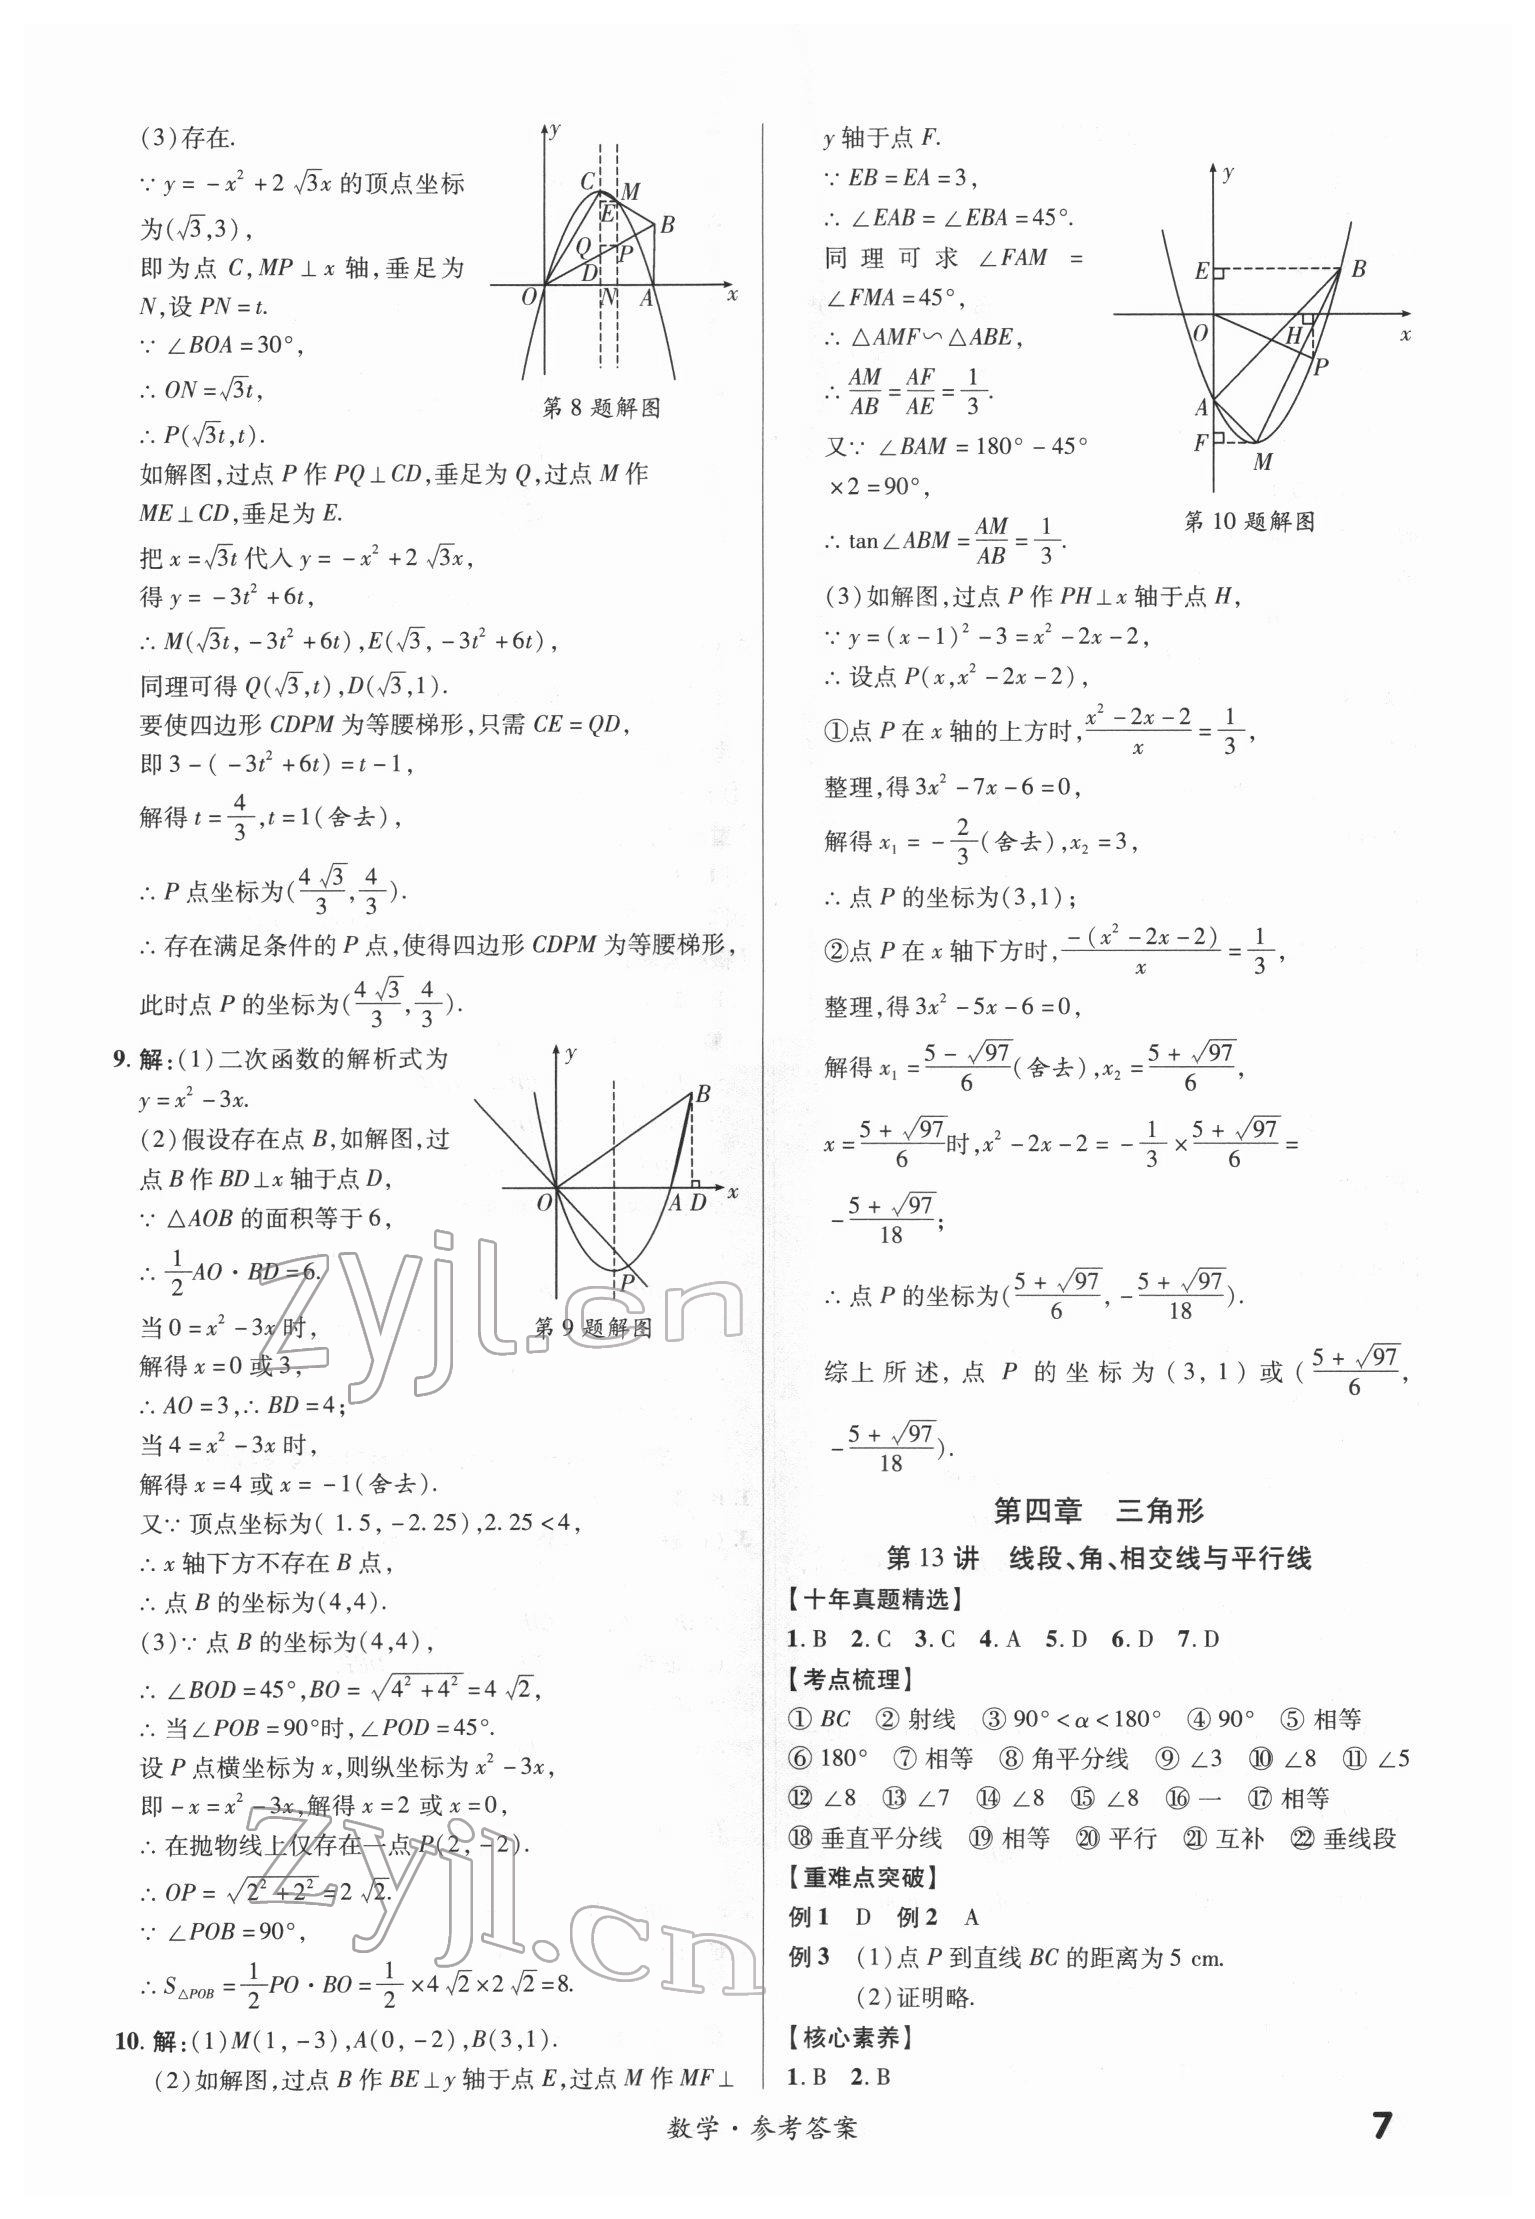 (3)存在.
∵ y = -x² + 2√3x 的顶点坐标
为(√3,3),
即为点 C,MP⊥x 轴,垂足为
N,设 PN = t.
∵ ∠BOA = 30°,
∴ ON = √3t,
∴ P(√3t,t).
第 8 题解图
如解图,过点 P 作 PQ⊥CD,垂足为 Q,过点 M 作
ME⊥CD,垂足为 E.
把 x = √3t 代入 y = -x² + 2√3x,
得 y = -3t² + 6t,
∴ M(√3t, -3t² + 6t),E(√3, -3t² + 6t),
同理可得 Q(√3,t),D(√3,1).
要使四边形 CDPM 为等腰梯形,只需 CE = QD,
即 3 - ( -3t² + 6t) = t - 1,
解得 t = 4/3,t = 1(舍去),
∴ P 点坐标为(4√3/3, 4/3).
∴ 存在满足条件的 P 点,使得四边形 CDPM 为等腰梯形,
此时点 P 的坐标为(4√3/3, 4/3).
9. 解:(1)二次函数的解析式为
y = x² - 3x.
(2)假设存在点 B,如解图,过
点 B 作 BD⊥x 轴于点 D,
∵ △AOB 的面积等于 6,
∴ 1/2 AO·BD = 6.
当 0 = x² - 3x 时,
第 9 题解图
解得 x = 0 或 3,
∴ AO = 3,∴ BD = 4;
当 4 = x² - 3x 时,
解得 x = 4 或 x = -1(舍去).
又∵ 顶点坐标为( 1.5, -2.25),2.25 < 4,
∴ x 轴下方不存在 B 点,
∴ 点 B 的坐标为(4,4).
(3)∵ 点 B 的坐标为(4,4),
∴ ∠BOD = 45°,BO = √(4² + 4²) = 4√2,
∴ 当∠POB = 90°时,∠POD = 45°.
设 P 点横坐标为 x,则纵坐标为 x² - 3x,
即 -x = x² - 3x,解得 x = 2 或 x = 0,
∴ 在抛物线上仅存在一点 P(2, -2).
∴ OP = √(2² + 2²) = 2√2.
∵ ∠POB = 90°,
∴ S△POB = 1/2 PO·BO = 1/2 × 4√2 × 2√2 = 8.
10. 解:(1)M(1, -3),A(0, -2),B(3,1).
(2)如解图,过点 B 作 BE⊥y 轴于点 E,过点 M 作 MF⊥
y 轴于点 F.
∵ EB = EA = 3,
∴ ∠EAB = ∠EBA = 45°.
同理可求 ∠FAM =
∠FMA = 45°,
∴ △AMF∽△ABE,
∴ AM/AB = AF/AE = 1/3.
又∵ ∠BAM = 180° - 45°
×2 = 90°,
第 10 题解图
∴ tan∠ABM = AM/AB = 1/3.
(3)如解图,过点 P 作 PH⊥x 轴于点 H,
∵ y = (x - 1)² - 3 = x² - 2x - 2,
∴ 设点 P(x,x² - 2x - 2),
①点 P 在 x 轴的上方时,(x² - 2x - 2)/x = 1/3,
整理,得 3x² - 7x - 6 = 0,
解得 x₁ = -2/3(舍去),x₂ = 3,
∴ 点 P 的坐标为(3,1);
②点 P 在 x 轴下方时,-(x² - 2x - 2)/x = 1/3,
整理,得 3x² - 5x - 6 = 0,
解得 x₁ = (5 - √97)/6(舍去),x₂ = (5 + √97)/6,
x = (5 + √97)/6时,x² - 2x - 2 = -1/3 × (5 + √97)/6 =
-(5 + √97)/18;
∴ 点 P 的坐标为((5 + √97)/6, -(5 + √97)/18).
综上所述,点 P 的坐标为(3,1)或((5 + √97)/6,
-(5 + √97)/18).
第四章 三角形
第 13 讲 线段、角、相交线与平行线
【十年真题精选】
1. B 2. C 3. C 4. A 5. D 6. D 7. D
【考点梳理】
① BC ② 射线 ③ 90° < α < 180° ④ 90° ⑤ 相等
⑥ 180° ⑦ 相等 ⑧ 角平分线 ⑨ ∠3 ⑩ ∠8 ⑪ ∠5
⑫ ∠8 ⑬ ∠7 ⑭ ∠8 ⑮ ∠8 ⑯ 一 ⑰ 相等
⑱ 垂直平分线 ⑲ 相等 ⑳ 平行 ㉑ 互补 ㉒ 垂线段
【重难点突破】
例 1 D 例 2 A
例 3 (1)点 P 到直线 BC 的距离为 5 cm.
(2)证明略.
【核心素养】
1. B 2. B
数学·参考答案
7